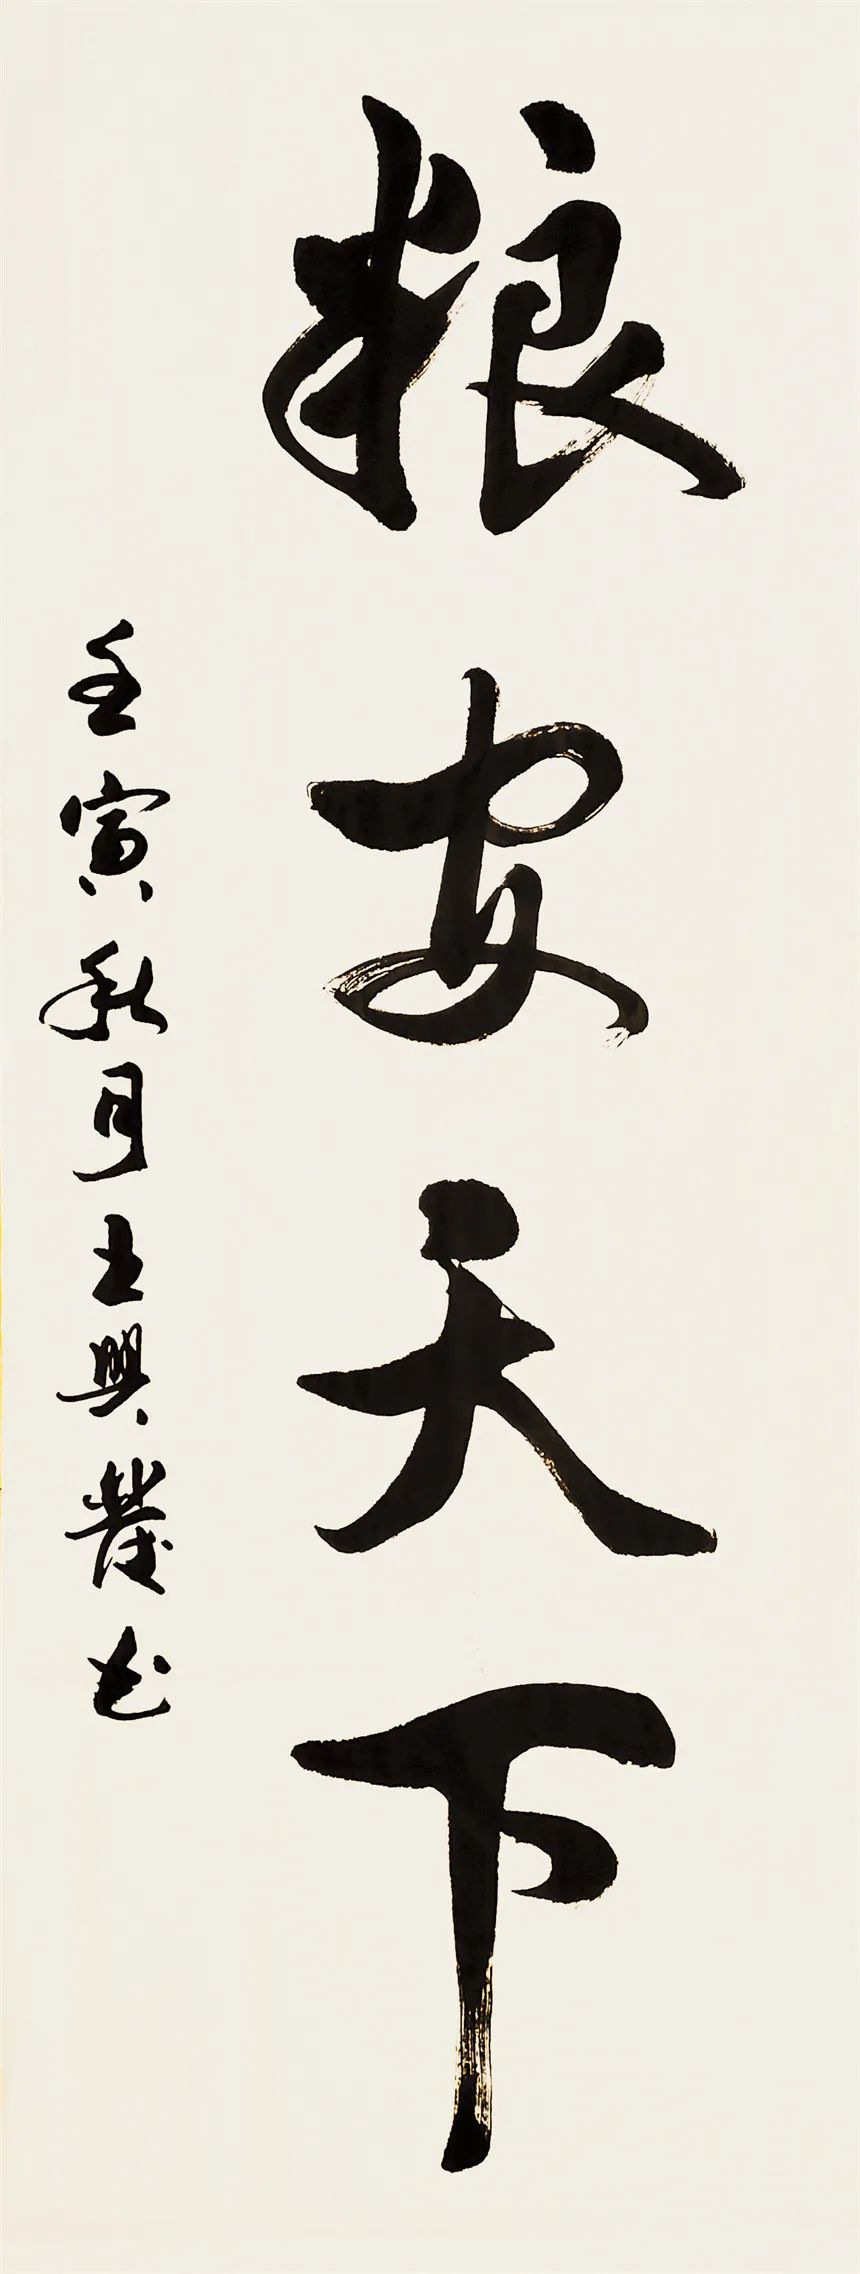 粮安天下
壬寅秋月王興發书